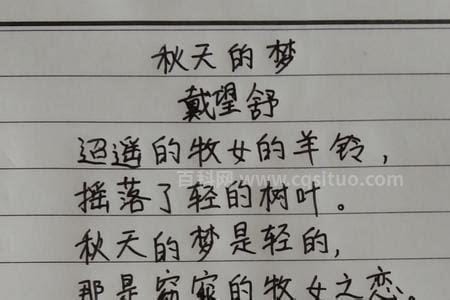 秋天的梦
戴望舒
迢遥的牧女的羊铃，
摇落了轻的树叶。
秋天的梦是轻的，
那是窈窕的牧女之恋。
百科网 www.cgsituo.com